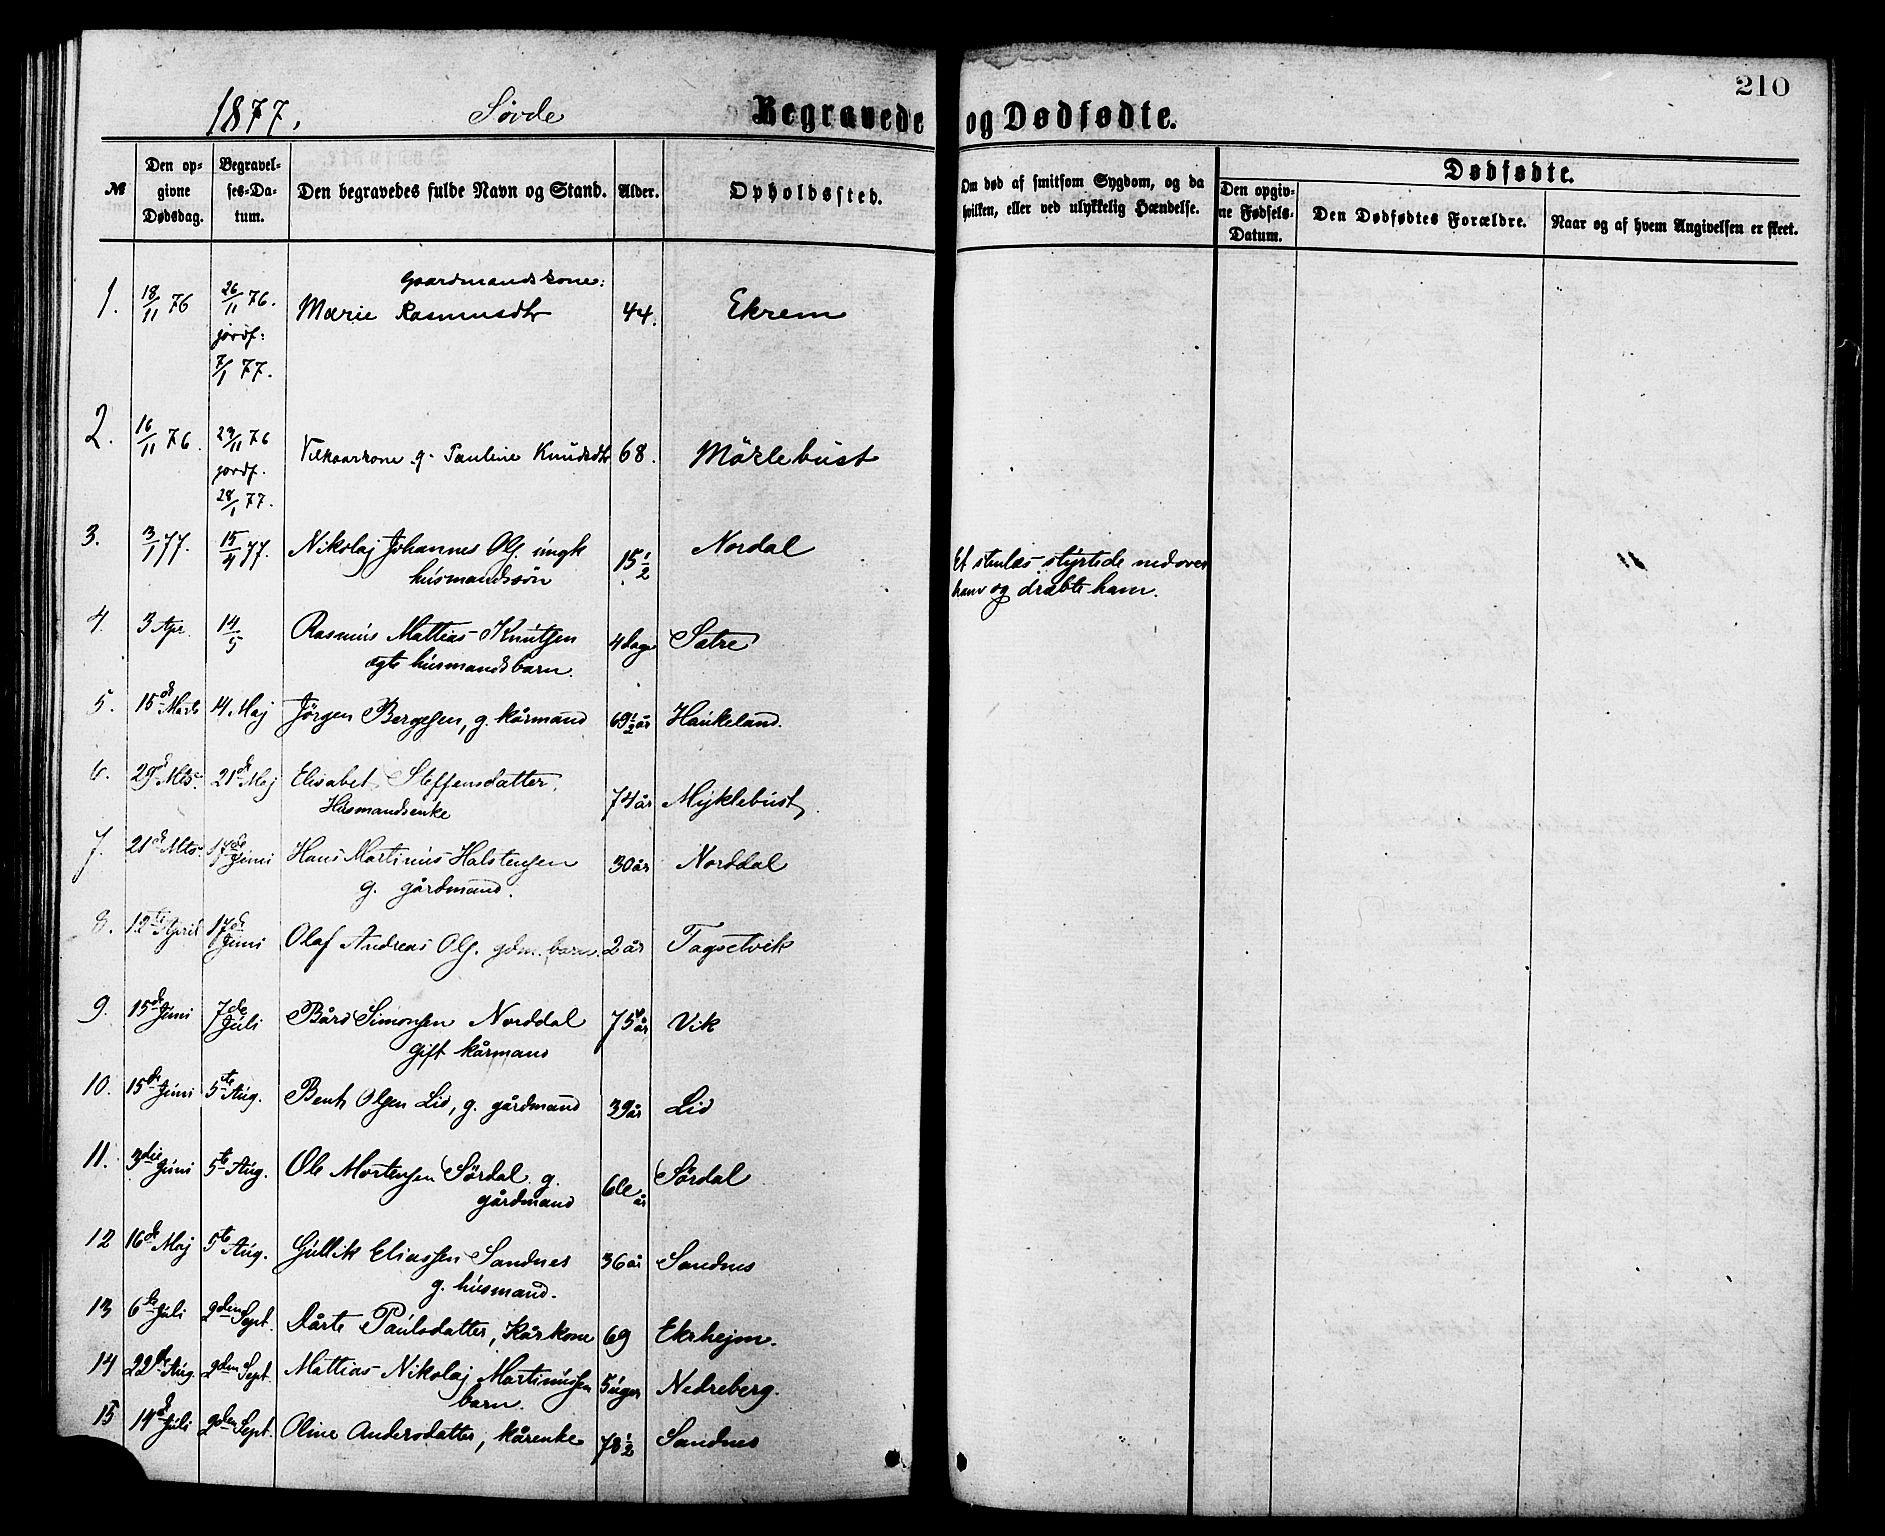 210
1877. Søvde Begravede og Dødfødte.
№ Den opgivne Dødsdag. Begravelses-Datum. Den begravedes fulde Navn og Stand. Alder. Opholdssted. Om død af smitsom Sygdom, og da hvilken, eller ved ulykkelig Hændelse. Dødfødte.
Den opgivne Fødsels-Datum. Den Dødfødtes Forældre. Naar og af hvem Angivelsen er skeet.
Gaardmandskone:
1. 18/11 76 26/11 76. Marie Rasmusdtr 44. Ekrem
jordf:
7/1 77.
2. 16/11 76. 29/11 76 Vilkaarkone g. Pauline Knudsdtr 68. Mörlebust
jordf.
28/1 77.
3. 3/1 77. 15/4 77. Nikolaj Johannes Ols. ungk 15 1/2 Nordal Et stenlæs styrtede ned over
husmandssøn ham og dræbte ham.
4. 3 Apr. 14/5 Rasmus Mattias Knutsen 4 dage Sætre
ægte husmandsbarn.
5. 15de Marts 14 Maj Jörgen Bergesen, g. kårmand 69 1/2 år Haukeland.
6. 29de Mts. 21de Maj Elisabet Steffensdatter, 74 år Myklebust
Husmandsenke
7. 21de Mts. 17de Juni Hans Martinus Halstensen 30 år Norddal
g. gårdmand.
8. 12te April 17de Juni Olaf Andreas Ols. gdm. barn. 2 år Tagsetvik
9. 15de Juni 7de Juli Bård Simonsen Norddal 75 år Vik
gift kårmand
10. 15de Juni 5te Aug. Bent Olsen Lid, g. gårdmand 39 år Lid
11. 3die Juni 5te Aug. Ole Mortensen Sördal g. år Sördal
gårdmand
12 16de Maj 5te Aug. Gullik Eliassen Sandnes 36 år Sandnes
g. husmand.
13 6te Juli 2den Sept. Dårte Paulsdatter, Kårkone 69 Ekrhejm.
14 22de Aug. 2den Sept. Mattias Nikolaj Martinussen 5 uger Nedreberg.
barn.
15 14de Juli 2den Sept. Oline Andersdatter, kårenke 78 1/2 Sandnes